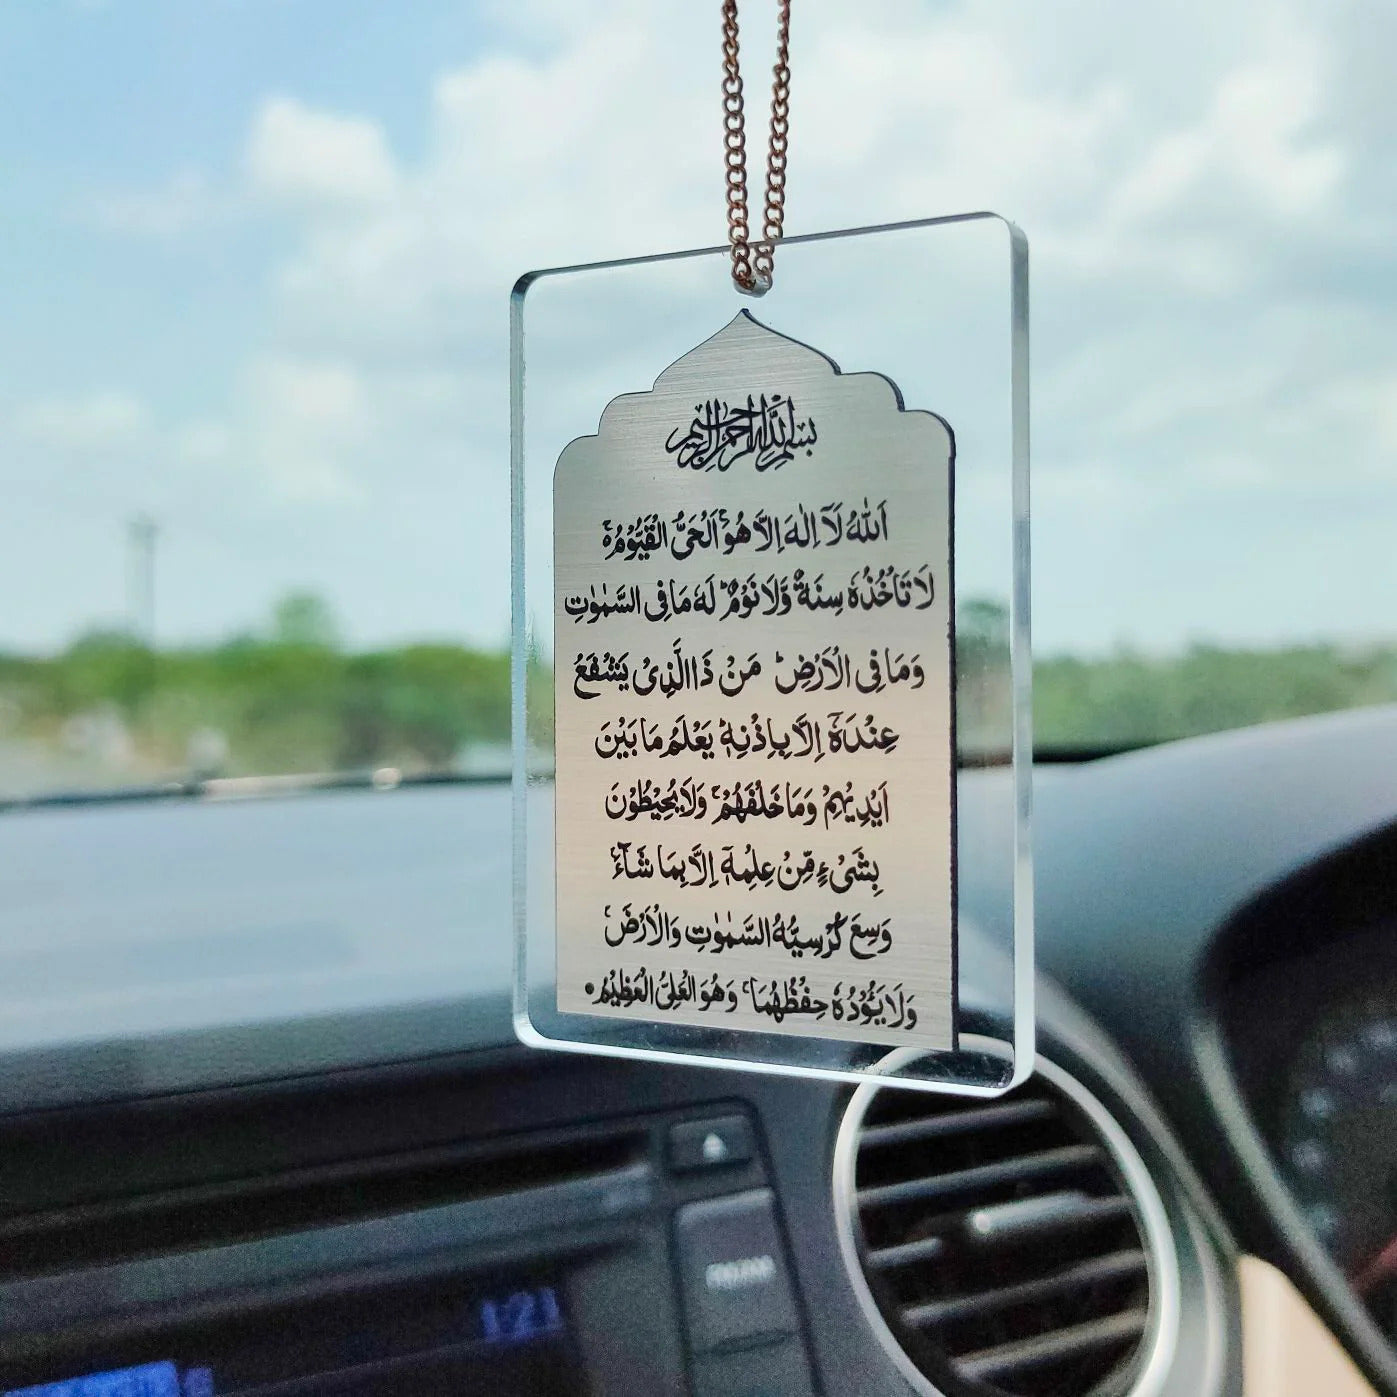 بسم الله الرحمن الرحيم
اَللّٰهُ لَآ اِلٰهَ اِلَّا هُوَ ۚ اَلْحَىُّ الْقَيُّوْمُ ۚ
لَا تَاْخُذُهٗ سِنَةٌ وَّلَا نَوْمٌ ؕ لَهٗ مَا فِى السَّمٰوٰتِ
وَمَا فِى الْاَرْضِ ؕ مَنْ ذَا الَّذِىْ يَشْفَعُ
عِنْدَهٗۤ اِلَّا بِاِذْنِهٖ ؕ يَعْلَمُ مَا بَيْنَ
اَيْدِيْهِمْ وَمَا خَلْفَهُمْ ۚ وَلَا يُحِيْطُوْنَ
بِشَىْءٍ مِّنْ عِلْمِهٖۤ اِلَّا بِمَا شَآءَ ۚ
وَسِعَ كُرْسِيُّهُ السَّمٰوٰتِ وَالْاَرْضَ ۚ
وَلَا يَـُٔوْدُهٗ حِفْظُهُمَا ۚ وَهُوَ الْعَلِىُّ الْعَظِيْمُ •
1:21